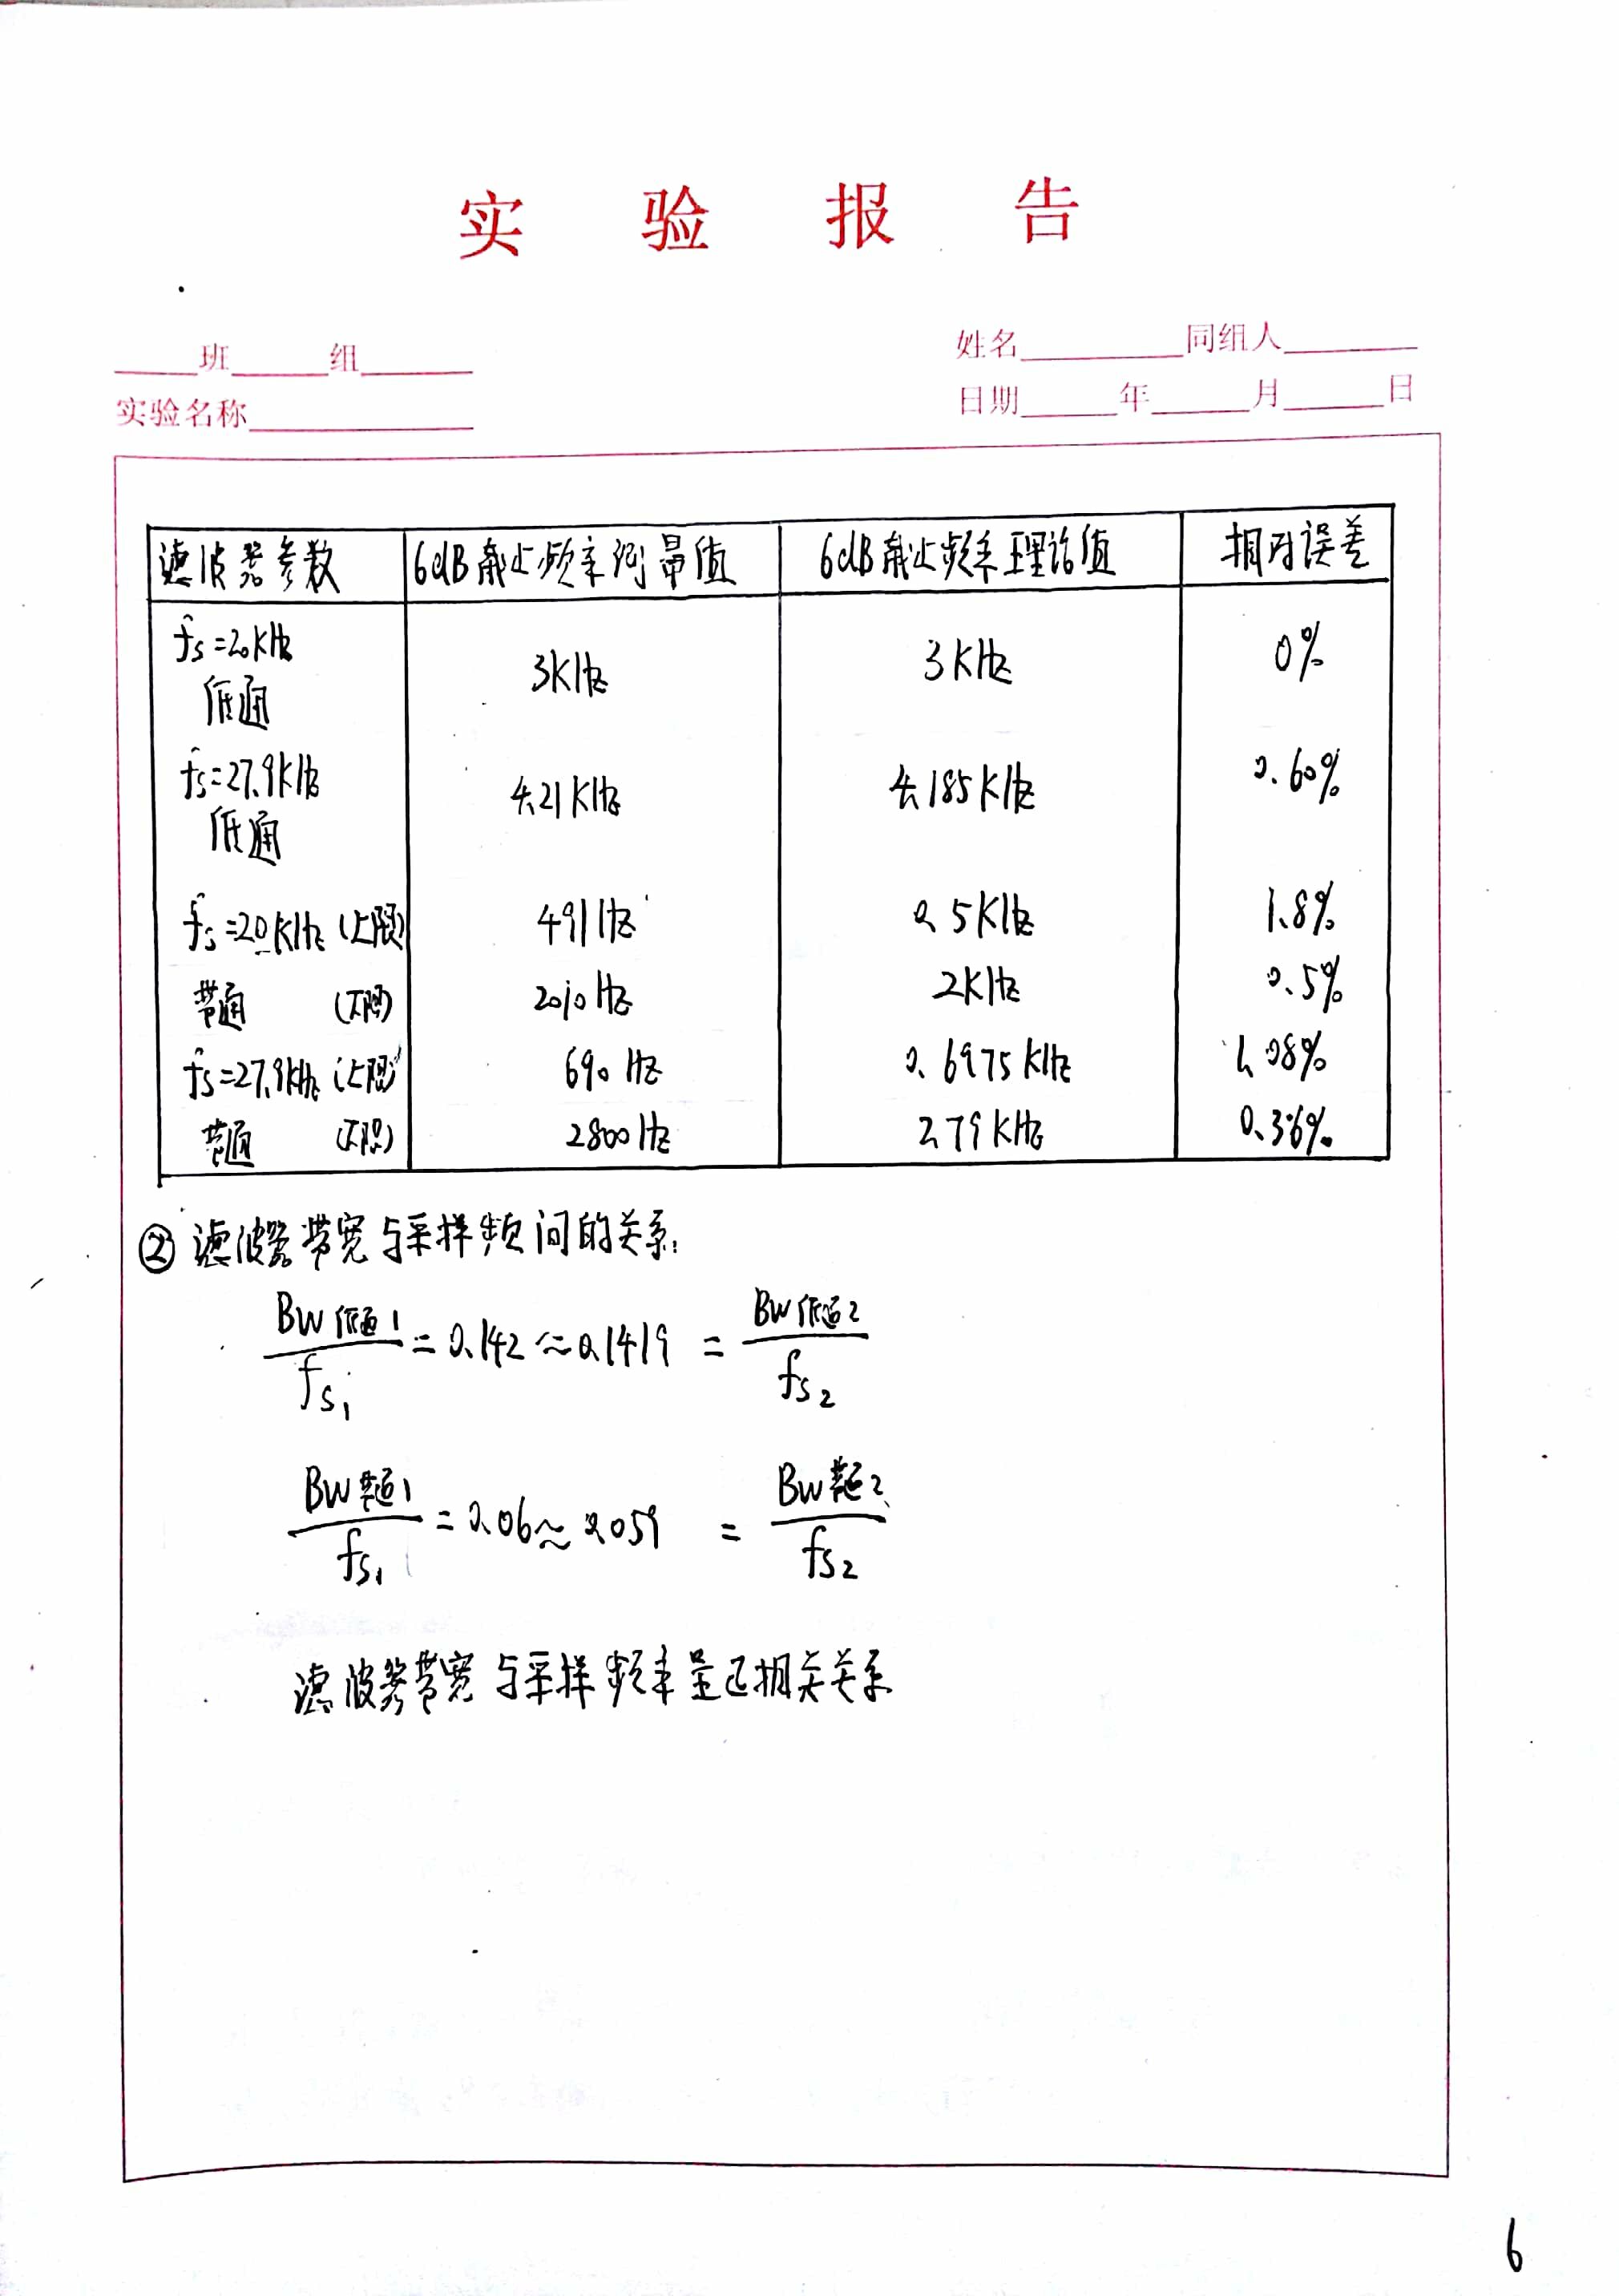 实 验 报 告
班 组 姓名 同组人
实验名称 日期 年 月 日
滤波器参数 6dB截止频率测量值 6dB截止频率理论值 相对误差
fs=20KHz 低通 3KHz 3KHz 0%
fs=27.9KHz 低通 4.21KHz 4.185KHz 0.60%
fs=20KHz (上限) 491Hz 0.5KHz 1.8%
带通 (下限) 2010Hz 2KHz 0.5%
fs=27.9KHz (上限) 690Hz 0.6975KHz 1.08%
带通 (下限) 2800Hz 2.79KHz 0.36%
② 滤波器带宽与采样频间的关系:
BW低通1/fs1 = 0.142 ≈ 0.1419 = BW低通2/fs2
BW带通1/fs1 = 0.06 ≈ 0.059 = BW带通2/fs2
滤波器带宽与采样频率呈正相关关系
6